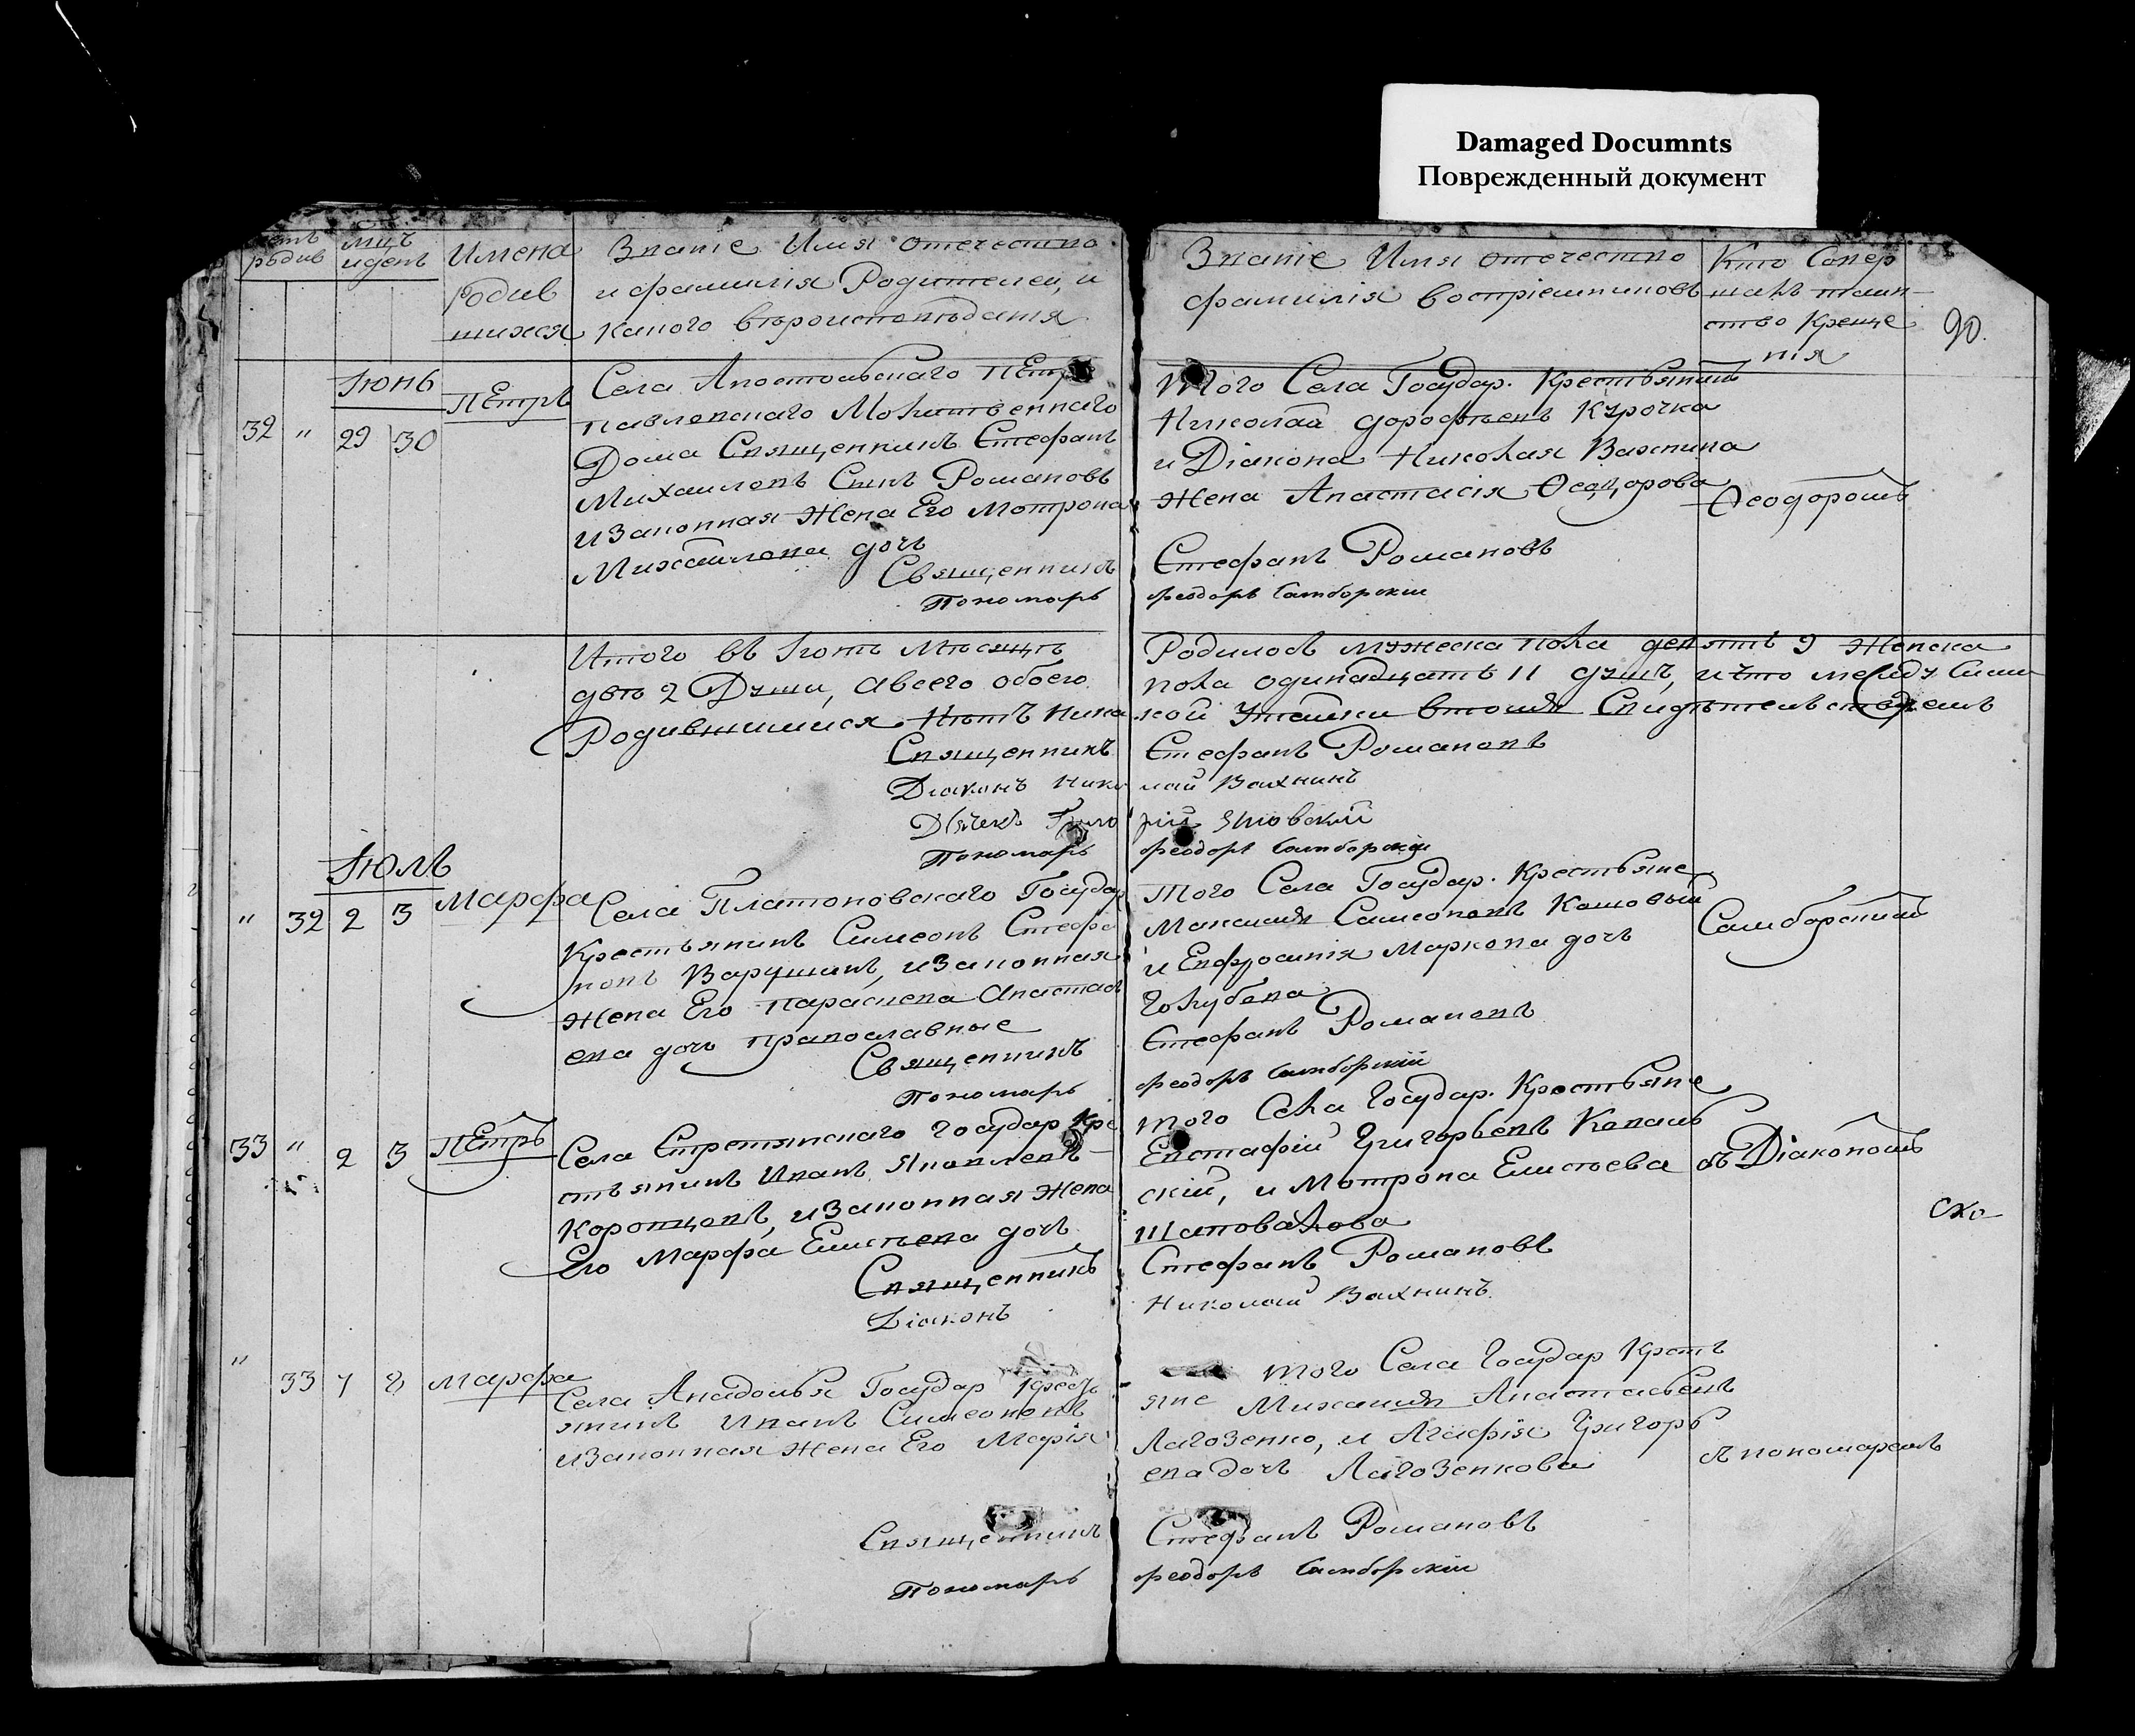 Damaged Documnts
Поврежденный документ
родив
мцъ
и день
Имена
Родив
шихся
Званіе Имя отечество
и фамилія Родителей, и
какого вѣроисповѣданія
Званіе Имя отечество
фамилія воспріемниковъ
Кто Совер
шалъ таин-
ство Креще
нія
90.
Іюнь
32 " 29 30
Петръ
Села Апостольскаго Петро
павловскаго Молитвеннаго
Дома Священникъ Стефанъ
Михаиловъ Сынъ Романовъ
и законная Жена Его Мотрона
Михайлова дочь
Священникъ
Пономарь
Того Села Государ. Крестьянинъ
Николай дорофѣевъ Курочка
и Діакона Николая Вахнина
Жена Анастасія Ѳеодорова
Ѳеодоромъ
Стефанъ Романовъ
Феодоръ Самборскій
Итого въ Іюнѣ Мѣсяцѣ
двѣ 2 Души, а всего обоего
Родившимися Нѣтъ Ника
Священникъ
Діаконъ Нико
Дьячекъ Григо
Пономарь
Родилось мужеска пола девять 9 Женска
пола одинадцать 11 душъ, и что между Сими
кой Утайки в томъ Свидѣтельствуемъ
Стефанъ Романовъ
лай Вахнинъ
рій Яновскій
Феодоръ Самборскій
Іюль
" 32 2 3
Марфа
Села Платоновскаго Государ
Крестьянинъ Симеонъ Стефа
новъ Варушинъ, и законная
Жена Его Параскева Анастась
ева дочь Православные
Священникъ
Пономарь
Того Села Государ. Крестьяне
Максимъ Самсоновъ Кошовый
и Евфросинія Маркова дочь
Голубева
Самборскимъ
Стефанъ Романовъ
Феодоръ Самборскій
33 " 2 3
Петръ
Села Стретинскаго Государ Кре
стьянинъ Иванъ Яковлевъ
Коропцовъ, и законная Жена
Его Марфа Елисѣева дочь
Священникъ
Діаконъ
Того Села Государ. Крестьяне
Евстафій Григорьевъ Капаль
скій, и Мотрона Елисѣева
Шаповалова
съ Діакономъ
Стефанъ Романовъ
Николай Вахнинъ
" 33 7 8
Марфа
Села Анадолья Государ Кресть
янинъ Иванъ Симеоновъ
и законная Жена Его Марія
Священникъ
Пономарь
Того Села Государ Кресть
яне Михаилъ Анастасьевъ
Лагозенко, и Агафія Григорь
ева дочь Лагозенкова
съ пономаремъ
Стефанъ Романовъ
Феодоръ Самборскій